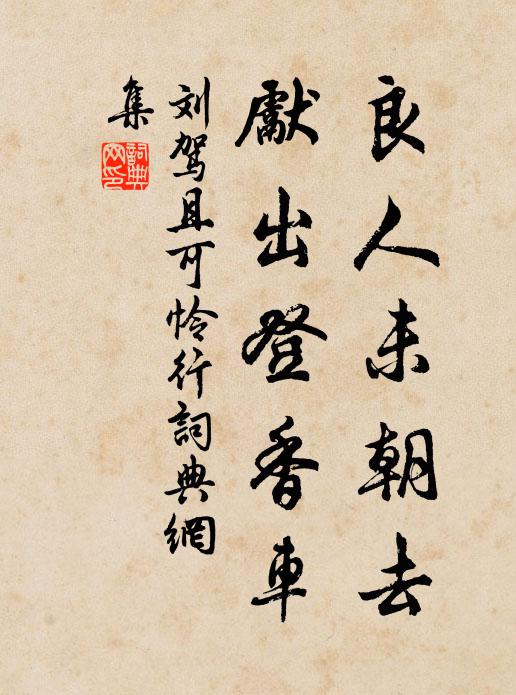 良人未朝去
獻出登香車
刘驾且可怜行詞典網
集
詞典
网印